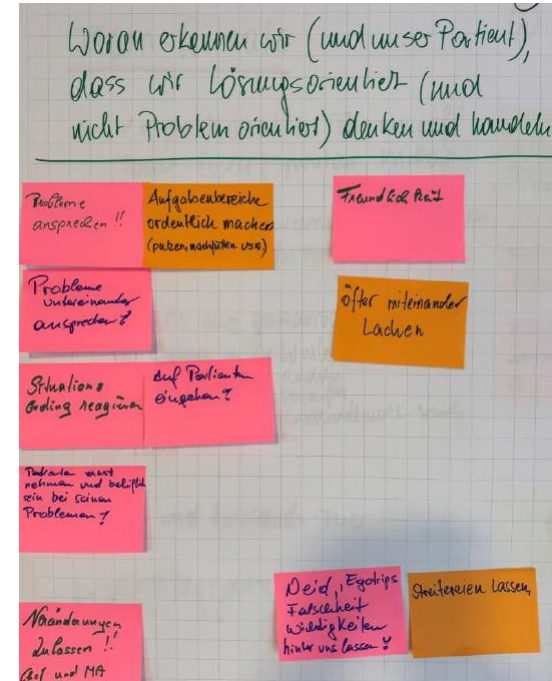 Woran erkennen wir (und unser Patient),
dass wir Lösungsorientiert (und
nicht Problem orientiert) denken und handeln
Probleme
ansprechen !!
Aufgabenbereiche
ordentlich machen
(putzen, nachfüllen usw)
Freundlichkeit
Probleme
untereinander
ansprechen?
öfter miteinander
Lachen
Situations
reagieren
Auf Patienten
eingehen?
Patienten ernst
nehmen und behilflich
sein bei seinen
Problemen?
Neid, Egotrips
Falschheit
Wichtigkeiten
hinter uns lassen!
Streitereien lassen,
Veränderungen
zulassen !!
Chef und MA